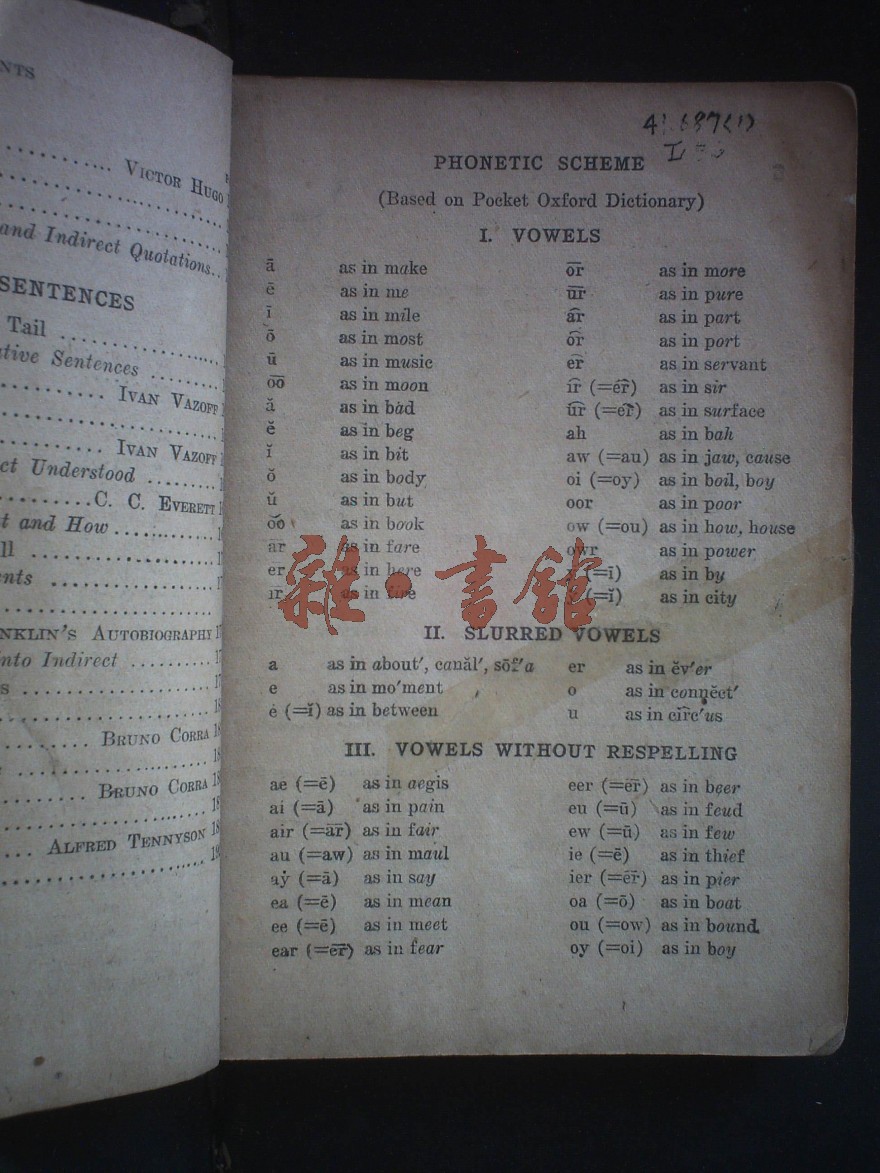 NTS
VICTOR HUGO
and Indirect Quotations..
SENTENCES
Tail
tive Sentences
IVAN VAZOFF
IVAN VAZOFF
ct Understood
C. C. EVERETT
t and How
ll
ents
NKLIN'S AUTOBIOGRAPHY
nto Indirect
s
BRUNO CORRA
BRUNO CORRA
ALFRED TENNYSON
PHONETIC SCHEME
(Based on Pocket Oxford Dictionary)
I. VOWELS
ā as in make o͞r as in more
ē as in me u͞r as in pure
ī as in mile a͡r as in part
ō as in most o͡r as in port
ū as in music er as in servant
o͞o as in moon i͡r (=e͡r) as in sir
ă as in bad u͡r (=e͡r) as in surface
ĕ as in beg ah as in bah
ĭ as in bit aw (=au) as in jaw, cause
ŏ as in body oi (=oy) as in boil, boy
ŭ as in but oor as in poor
o͝o as in book ow (=ou) as in how, house
a͞r as in fare owr as in power
e͞r as in here (=ī) as in by
i͞r as in fire (=ĭ) as in city
雜·書館
II. SLURRED VOWELS
a as in about′, canăl′, sōf′a er as in ĕv′er
e as in mo′ment o as in connĕct′
ė (=ĭ) as in between u as in ci͡rc′us
III. VOWELS WITHOUT RESPELLING
ae (=ē) as in aegis eer (=e͞r) as in beer
ai (=ā) as in pain eu (=ū) as in feud
air (=a͞r) as in fair ew (=ū) as in few
au (=aw) as in maul ie (=ē) as in thief
aẏ (=ā) as in say ier (=e͞r) as in pier
ea (=ē) as in mean oa (=ō) as in boat
ee (=ē) as in meet ou (=ow) as in bound
ear (=e͞r) as in fear oy (=oi) as in boy